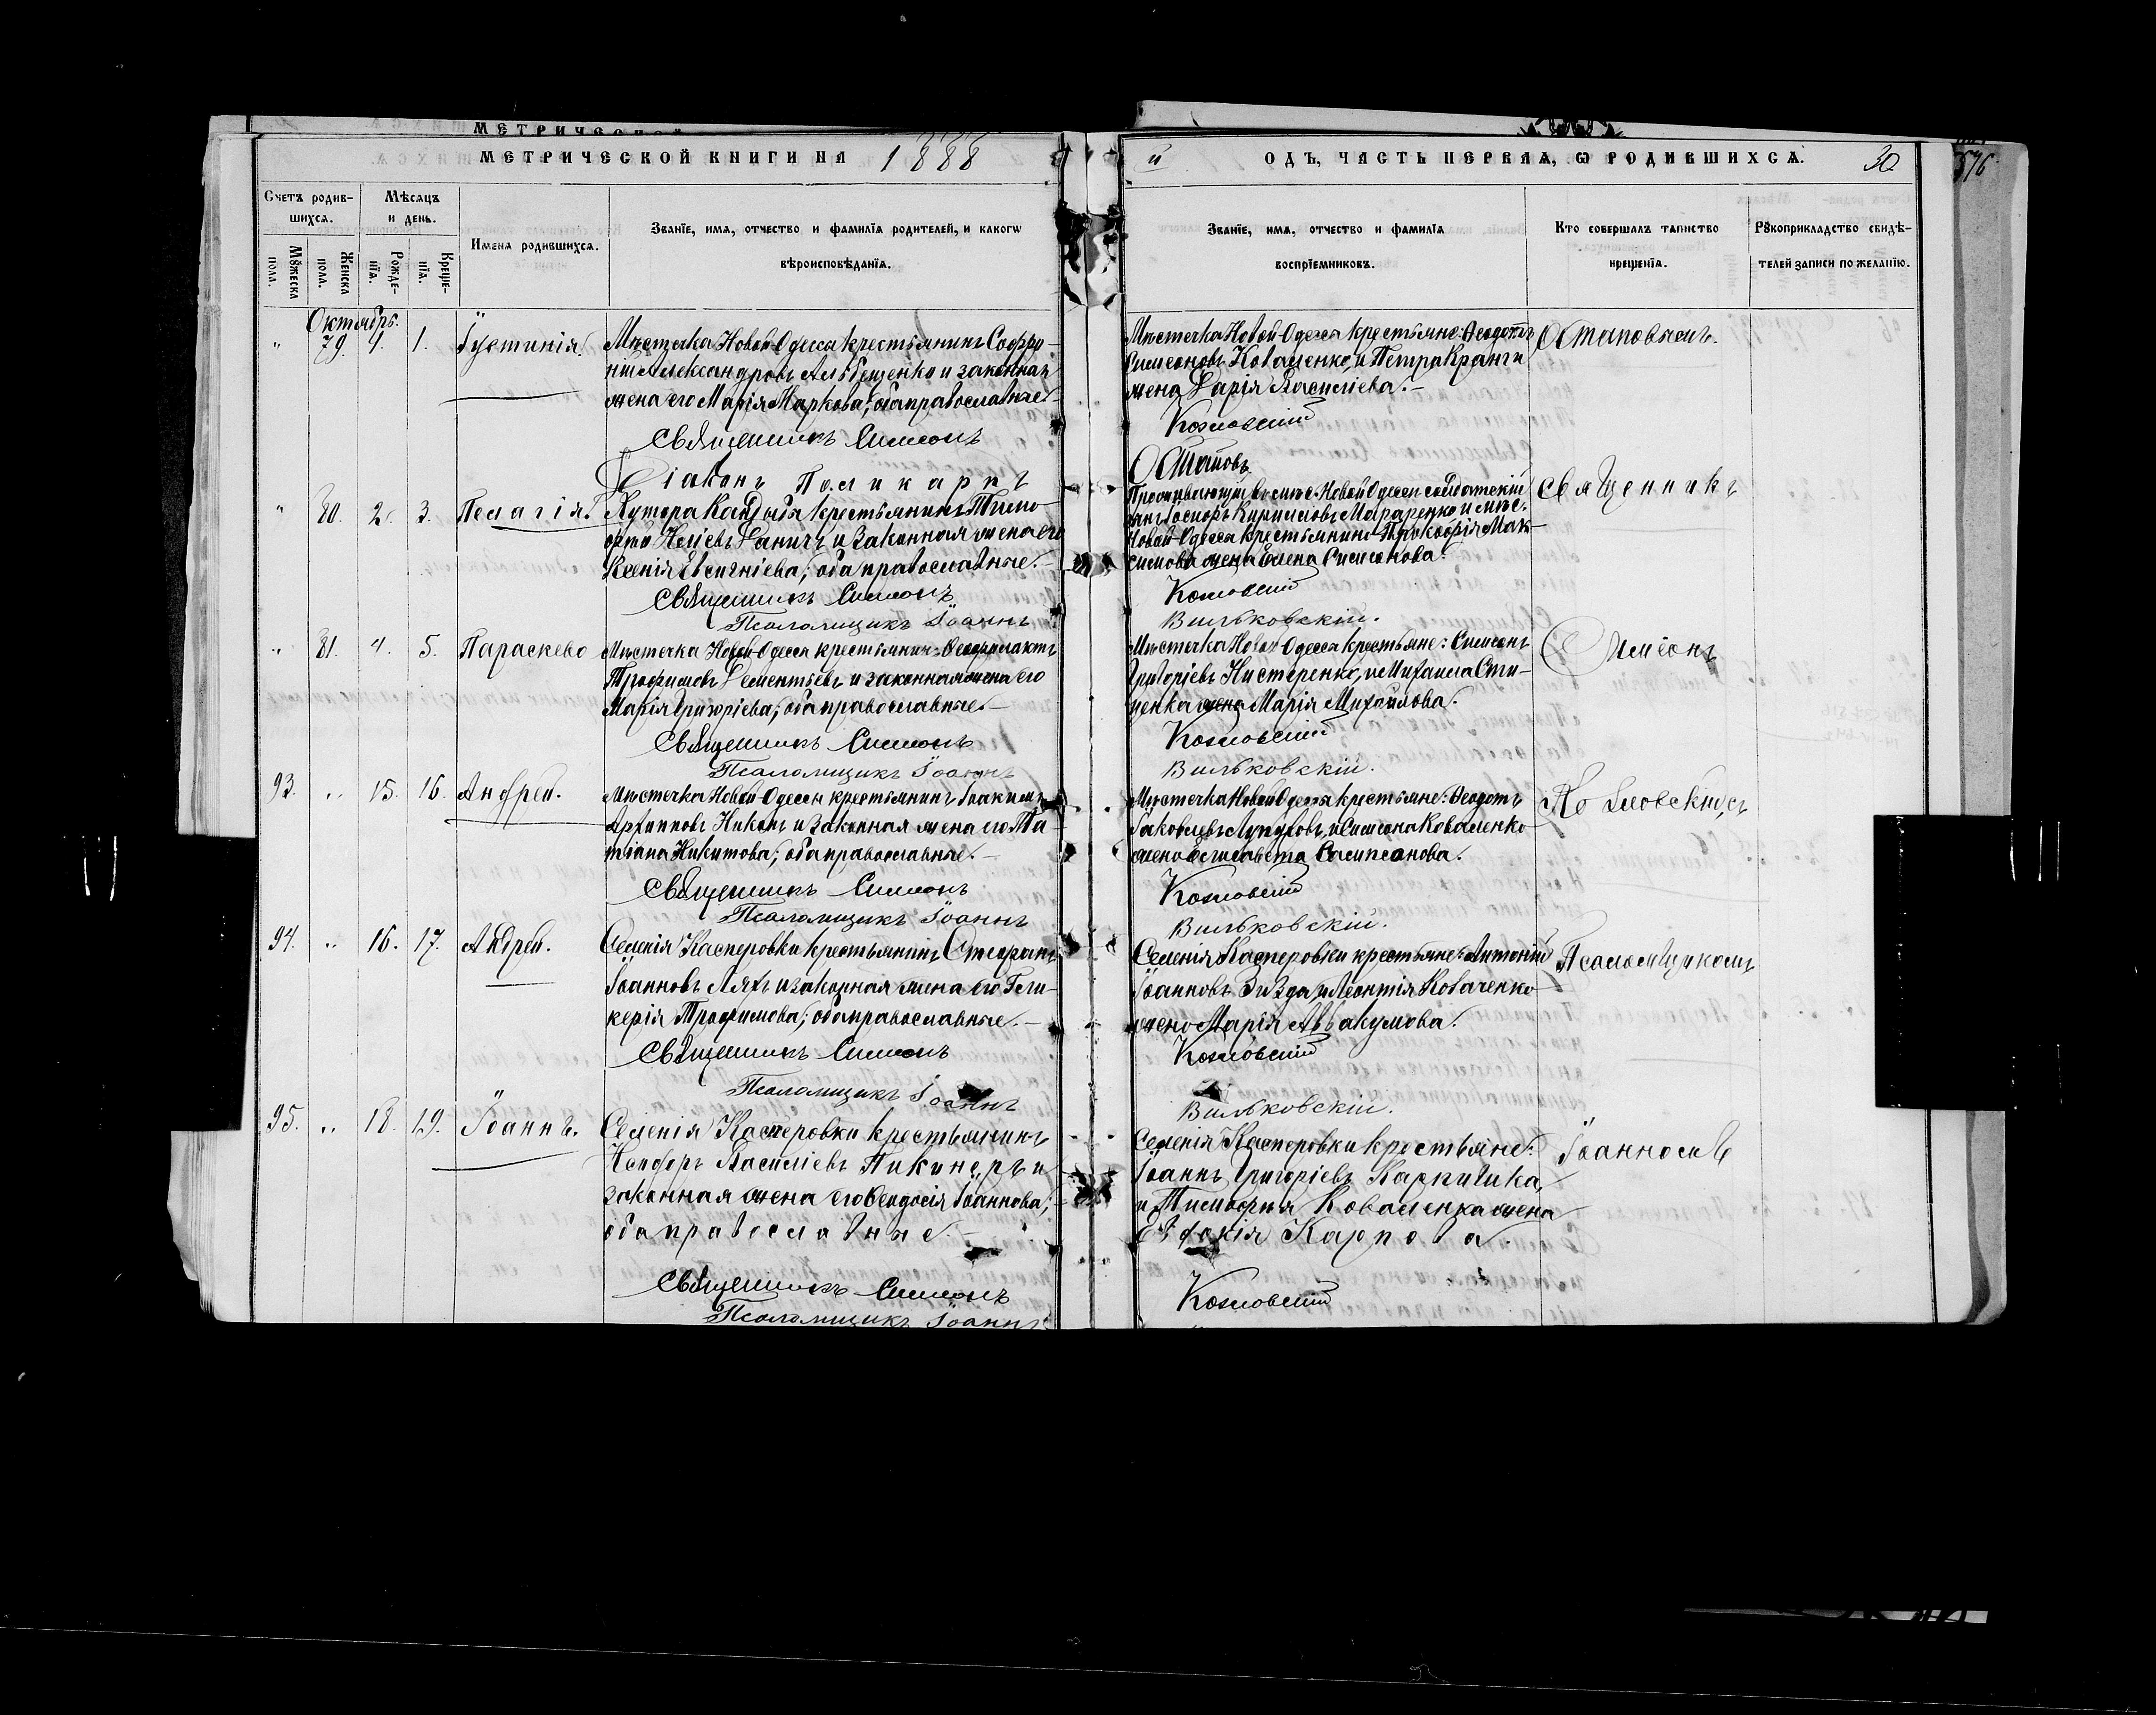 МЕТРИЧЕСКОЙ КНИГИ НА 1888
й ОДЪ, ЧАСТЬ ПЕРВАЯ, Ѡ РОДИВШИХСѦ. 30
576
Счетъ родив-
шихсѧ.
Мѣсяцъ
и день.
Мꙋжеска
пола.
Женска
пола.
Рожде-
нїѧ.
Креще-
нїѧ.
Имена родившихсѧ.
Званїе, имѧ, отчество и фамилїѧ родителей, и какогѡ
вѣроисповѣданїѧ.
Званїе, имѧ, отчество и фамилїѧ
воспрїемниковъ.
Кто совершалъ таинство
крещенїѧ.
Рꙋкоприкладство свидѣ-
телей записи по желанїю.
Октябрь.
" 79. 1. 1. Іустинія.
Мѣстечка Новой-Одессы крестьянинъ Софро-
ній Александровъ и законная
жена его Марія Маркова; оба православные.-
Священникъ Симеонъ
Діаконъ Поликарпъ
Мѣстечка Новой-Одессы крестьяне: Ѳеодотъ
Симеоновъ Коваленко, и Петра
жена Дарія Василіева.-
Козловскій
Остаповъ
Остаповымъ.
" 80. 2. 3. Пелагія.
Хутора Кандыба крестьянинъ Тимо-
и законная жена его
Ксенія Евсигніева; оба православные.-
Священникъ Симеонъ
Псаломщикъ Іоаннъ
Проживающій въ мѣс. Новой Одессы солдатскій
сынъ Кирилловъ и мѣс.
Новой-Одессы крестьянина Прокофія Мак-
симова жена Елена Симеонова.
Козловскій
Вильковскій.
Священникъ
" 81. 4. 5. Параскева
Мѣстечка Новой-Одессы крестьянинъ Ѳеофилактъ
Трофимовъ Дементьевъ и законная жена его
Марія Григоріева; оба православные.-
Священникъ Симеонъ
Псаломщикъ Іоаннъ
Мѣстечка Новой-Одессы крестьяне: Симеонъ
Григоріевъ Нистеренко, и Михаила Сти-
ценка жена Марія Михайлова.
Козловскій
Вильковскій.
Симеонъ
93. " 15. 16. Андрей.
Мѣстечка Новой-Одессы крестьянинъ Іоакимъ
Архипповъ Никонъ и законная жена его Та-
тіана Никитова; оба православные.-
Священникъ Симеонъ
Псаломщикъ Іоаннъ
Мѣстечка Новой Одессы крестьяне: Ѳеодотъ
Іаковлевъ и Симеона Коваленко
жена Елисавета
Козловскій
Вильковскій.
Козловскимъ
94. " 16. 17. Андрей.
Селенія Касперовки крестьянинъ Стефанъ
Іоанновъ Ляхъ и законная жена его Гли-
керія Трофимова; оба православные.-
Священникъ Симеонъ
Псаломщикъ Іоаннъ
Селенія Касперовки крестьяне: Антоній
Іоанновъ и Леонтія
жена Марія Аввакумова.
Козловскій
Вильковскій.
Псаломщикомъ
95. " 18. 19. Іоаннъ.
Селенія Касперовки крестьянинъ
Василіевъ Пикинеръ и
законная жена его Ѳеодосія Іоаннова;
оба православные.-
Священникъ Симеонъ
Псаломщикъ Іоаннъ
Селенія Касперовки крестьяне:
Іоаннъ Григоріевъ
и Тимофея Коваленка жена
Евдокія Карпова.
Козловскій
Іоанномъ В